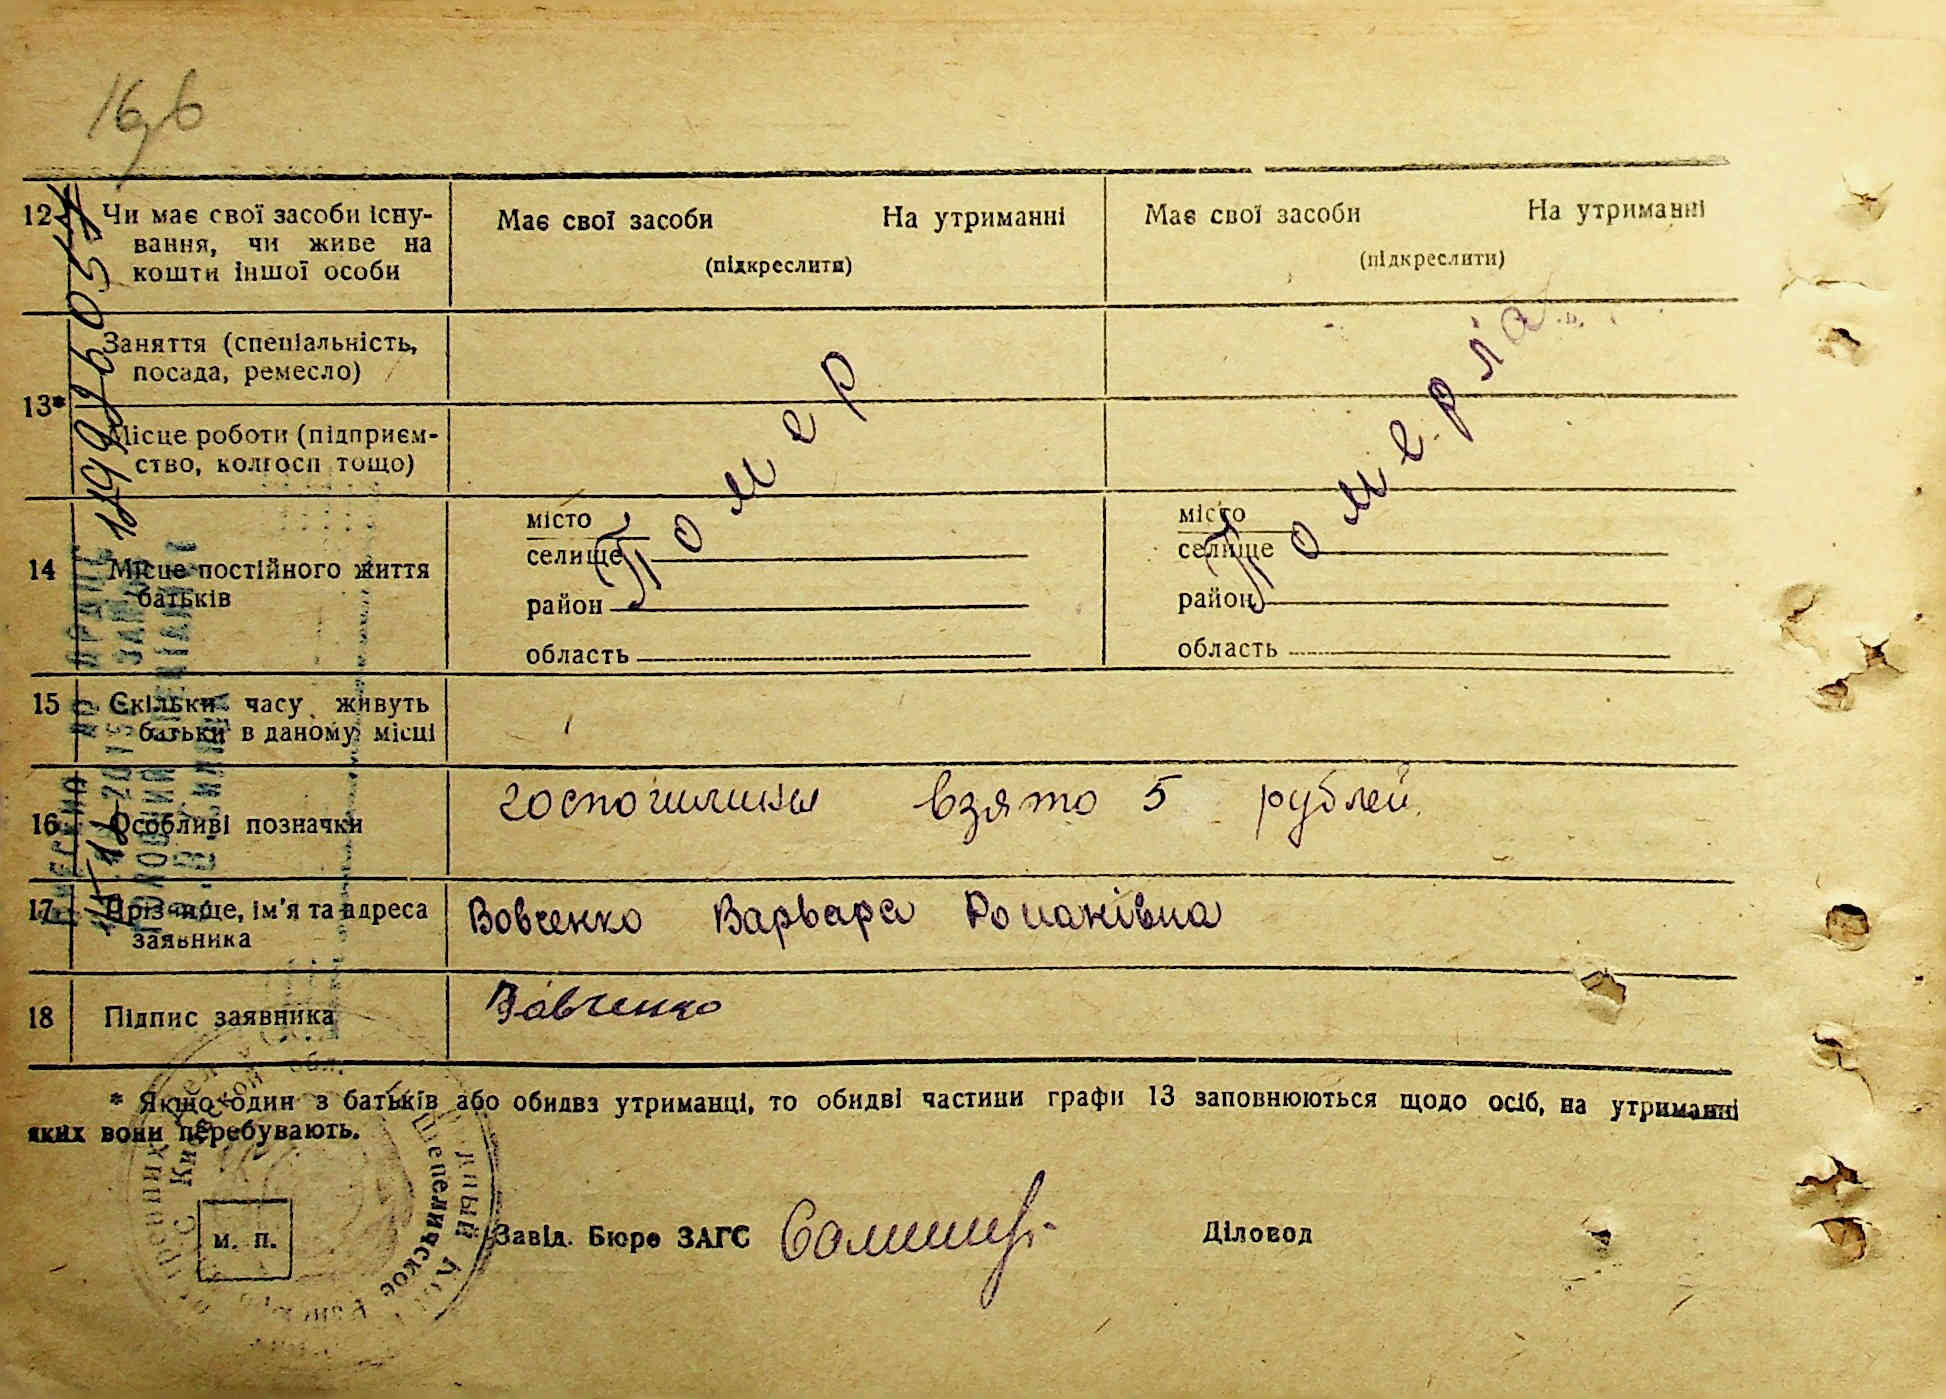 12 Чи має свої засоби існу-
вання, чи живе на
кошти іншої особи
Має свої засоби На утриманні
(підкреслити)
Має свої засоби На утриманні
(підкреслити)
13*
Заняття (спеціальність,
посада, ремесло)
Місце роботи (підприєм-
ство, колгосп тощо)
Помер
Померла
14 Місце постійного життя
батьків
місто
селище
район
область
місто
селище
район
область
15 Скільки часу живуть
батьки в даному місці
16 Особливі позначки
госпошлины взято 5 рублей
17 Прізвище, ім'я та адреса
заявника
Вовченко Варвара Романівна
18 Підпис заявника
Вовченко
* Якщо один з батьків або обидва утриманці, то обидві частини графи 13 заповнюються щодо осіб, на утриманні
яких вони перебувають.
м. п.
Завід. Бюро ЗАГС
Діловод